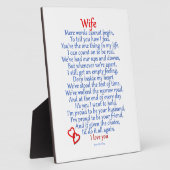 Wife
Mere words cannot begin,
To tell you how I feel.
You're the one thing in my life,
I can count on to be real.
We've had our ups and downs,
But whenever we're apart,
I still get an empty feeling,
Deep inside my heart.
We've stood the test of time,
We've walked the narrow road.
And at the end of every day
It's you I want to hold.
I'm proud to be your husband,
I'm proud to be your friend,
And if given the chance,
I'd do it all again.
I love you